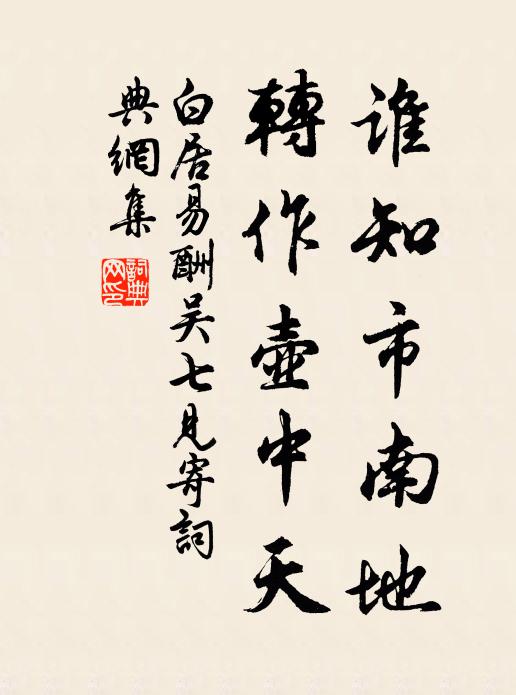 誰知市南地
轉作壺中天
白居易酬吴七見寄詞
典網集
詞典
网印